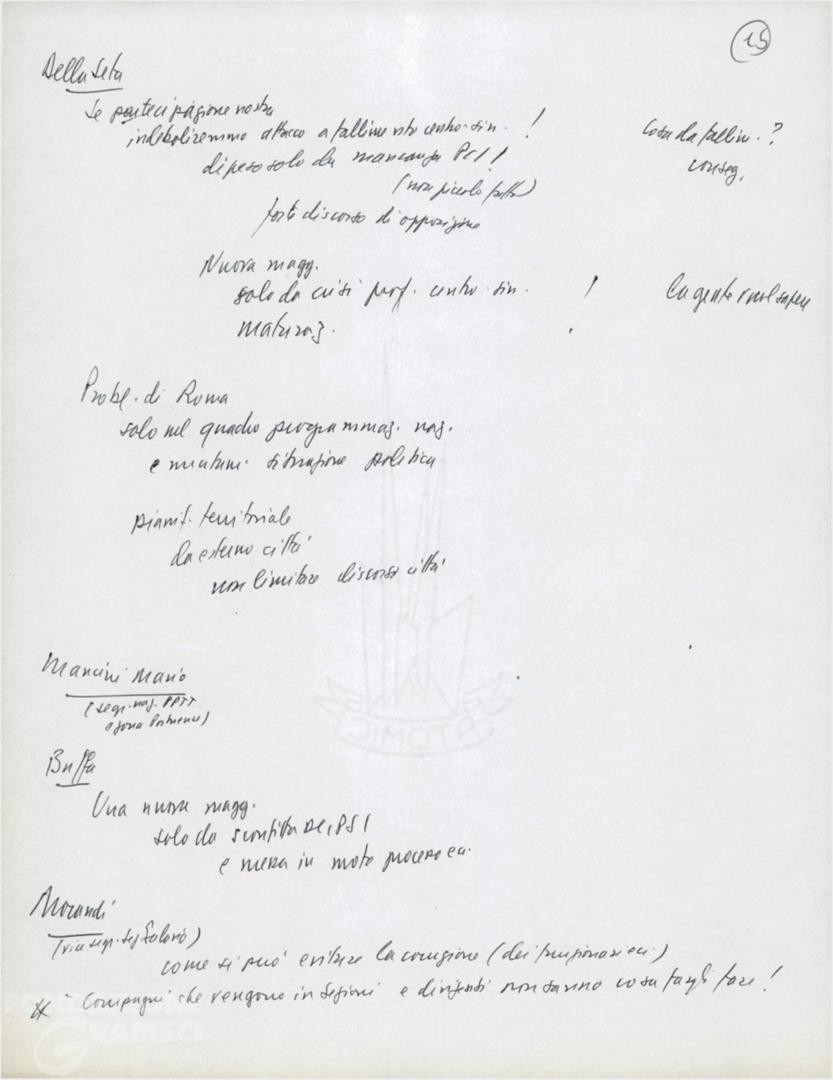 15
Della Seta
Se partecipazione nostra
indeboliremmo attacco a fallimento centro-sin. !
Cosa da fallim. ?
conseg.
dipeso solo da mancanza PCI !
(non piccolo fatto)
forte discorso di opposizione
Nuova magg.
solo da crisi prof. centro-sin. !
La gente vuol sapere
maturaz.
Probl. di Roma
solo nel quadro programmaz. naz.
e mutam. situazione politica
pianif. territoriale
da esterno città
non limitare discorso città
Mancini Mario
(segr. naz. PPTT
e zona Portuense)
Buffa
Una nuova magg.
solo da sconfitta DC, PSI
e messa in moto processo ecc.
Morandi
(vice segr. sez. Salario)
come si può evitare la corruzione (dei funzionari ecc.)
Compagni che vengono in Sezioni e dirigenti non sanno cosa fargli fare !
FONDAZIONE
GRAMSCI
ATOMIC